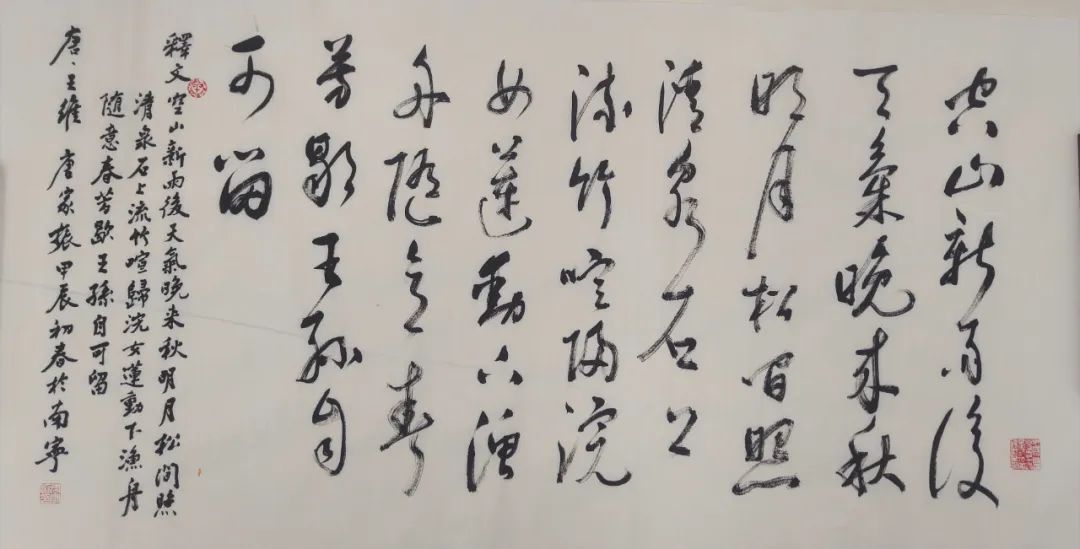 空山新雨後
天氣晚来秋
明月松间照
清泉石上
流竹喧歸浣
女蓮動下漁
舟随意春
芳歇王孫自
可留
釋文 空山新雨後天氣晚来秋明月松間照
清泉石上流竹喧歸浣女蓮動下漁舟
随意春芳歇王孫自可留
唐、王維 唐家 甲辰初春於南寧